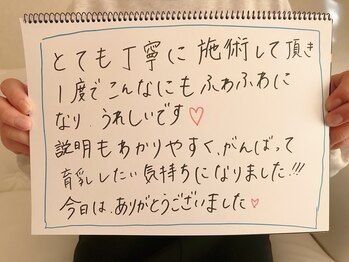 とても丁寧に施術して頂き
1度でこんなにもふあふあに
なり、うれしいです♡
説明もあかりやすく、がんばって
育乳したい気持ちになりました!!!
今日は、ありがとうございました♡